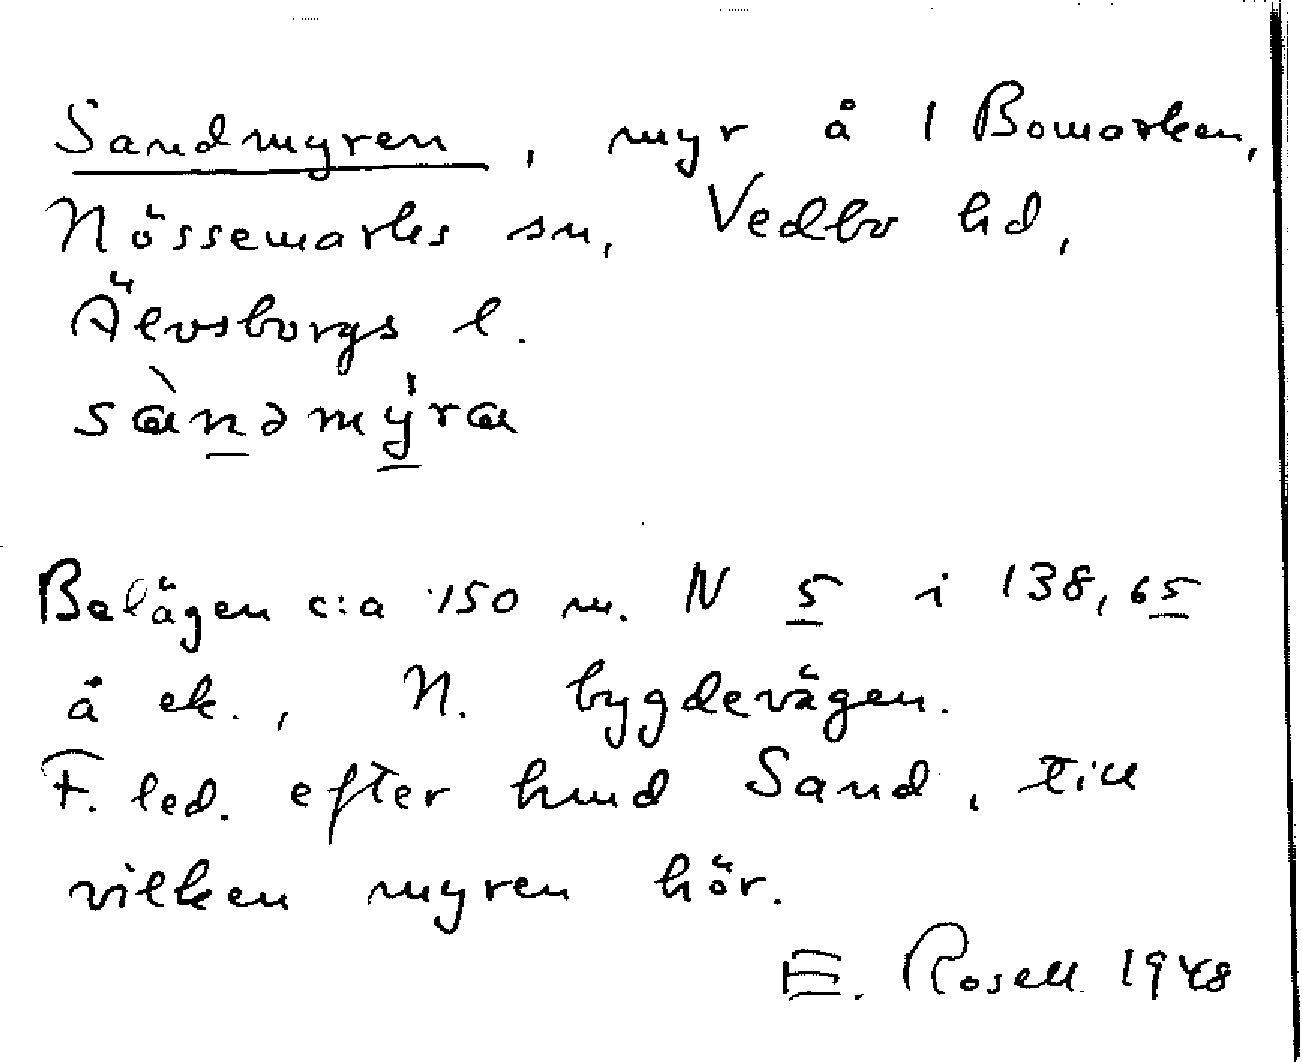 Sandmyren, myr å 1 Bomarken,
Nössemarks sn, Vedbo hd,
Älvsborgs l.
sàndmy̍ra
Belägen c:a 150 m. N 5 i 138,65
å ek., N. bygdevägen.
F. led. efter hmd Sand, till
vilken myren hör.
E. Rosell 1948